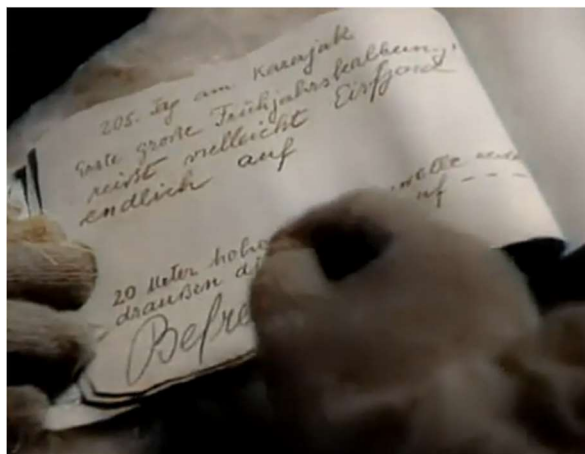 205. Tag am Karajak
Erste große Frühjahrskalbung,
reißt vielleicht Eisfjord
endlich auf
welle
20 Meter hohe auf ---
draußen di
Befre